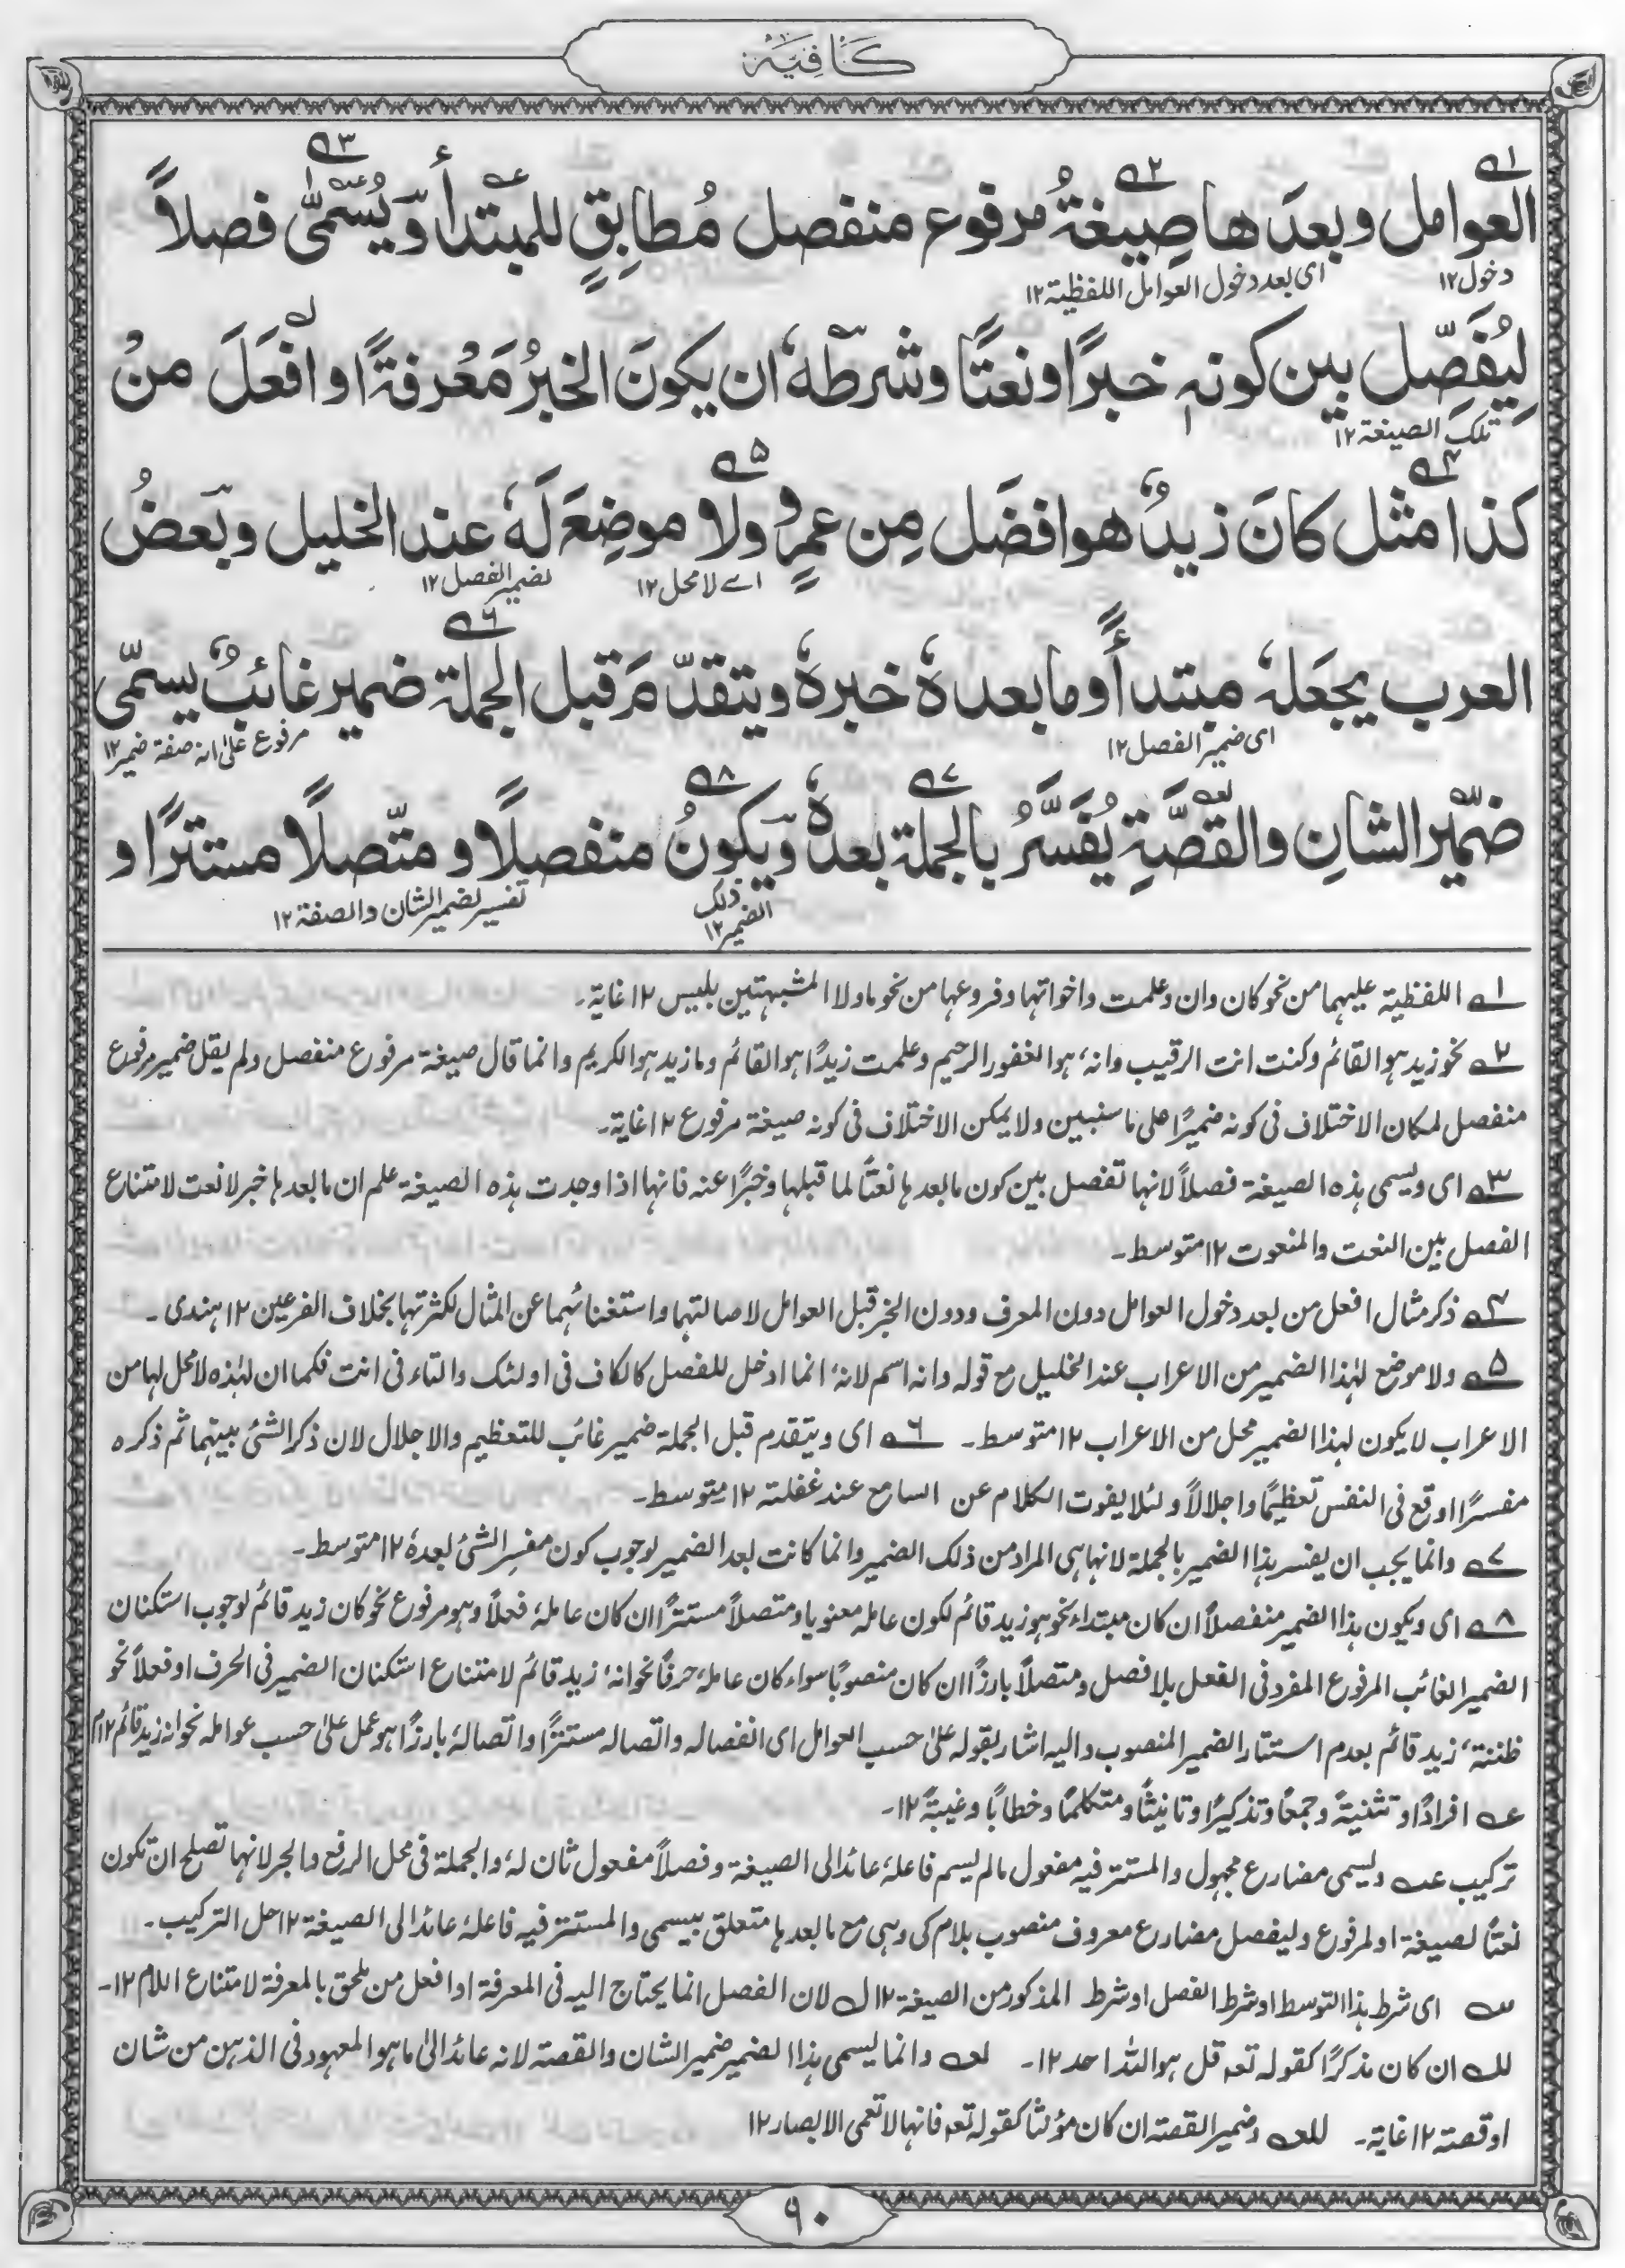 كَافِيَة
العوامل وبعدَها صِيغةُ مرفوع منفصل مُطابِقٍ للمبتدأ ويُسَمّٰى فصلاً
دخول١٢ ای بعد دخول العوامل اللفظية١٢
لِيُفَصِّل بين كونہٖ خبرًا ونعتًا وشرطہٗ ان يكونَ الخبرُ مَعْرفةً او افعَلَ منْ
تلك الصيغة١٢
كذا مثل كانَ زيدٌ هوافضَل مِن عمرٍو ولا موضِعَ لَهٗ عند الخليل وبَعضُ
اے لا محل١٢ لضمير الفصل١٢
العرب يجعَلہٗ مبتدأً وما بعدهٗ خبرهٗ ويتقدّمَ قبل الجملة ضمير غائبٌ يسمّٰى
ای ضمير الفصل١٢ مرفوع علیٰ انہ صفة ضمير١٢
ضميرَ الشانِ والقصَّةِ يُفَسَّرُ بالجملة بعدهٗ ويكونُ منفصلًا ومتّصلًا مستترًا و
ذلك الضمير١٢ تفسير لضمير الشان والصفة١٢
١ اللفظية عليهما من نحو كان وان وعلمت واخواتها وفروعها من نحو ما ولا المشبهتين بليس ١٢ غاية۔
٢ نحو زيد هو القائم وكنت انت الرقيب وانہٗ هو الغفور الرحيم وعلمت زيدًا هو القائم وما زيد هو الكريم وانما قال صيغة مرفوع منفصل ولم يقل ضمير مرفوع
منفصل لمكان الاختلاف فی كونہ ضميرًا علی ما سنبين ولا يمكن الاختلاف فی كونہ صيغة مرفوع ١٢ غاية۔
٣ ای ويسمی هذه الصيغة فصلاً لانها تفصل بين كون ما بعدها نعتًا لما قبلها وخبرًا عنہ فانها اذا وجدت هذه الصيغة علم ان ما بعدها خبر لا نعت لامتناع
الفصل بين النعت والمنعوت ١٢ متوسط۔
٤ ذكر مثال افعل من بعد دخول العوامل دون المعرف ودون الخبر قبل العوامل لاصالتهما واستغنائهما عن المثال لكثرتها بخلاف الفرعين ١٢ هندی۔
٥ ولا موضع لهٰذا الضمير من الاعراب عند الخليل مع قولہ وانہ اسم لانہٗ انما ادخل للفصل كالكاف فی اولئك والتاء فی انت فكما ان لهٰذه لا محل لها من
الاعراب لا يكون لهذا الضمير محل من الاعراب ١٢ متوسط۔ ٦ ای ويتقدم قبل الجملة ضمير غائب للتعظيم والاجلال لان ذكر الشئ مبهمًا ثم ذكره
مفسرًا اوقع فی النفس تعظيمًا واجلالاً ولئلا يفوت الكلام عن السامع عند غفلتہ ١٢ متوسط۔
٧ وانما يجب ان يفسر هذا الضمير بالجملة لانها هی المراد من ذلك الضمير وانما كانت بعد الضمير لوجوب كون مفسر الشئ بعدهٗ ١٢ متوسط۔
٨ ای ويكون هذا الضمير منفصلاً ان كان مبتداء نحو هو زيد قائم لكون عاملہ معنويا ومتصلاً مستترًا ان كان عاملہٗ فعلاً وهو مرفوع نحو كان زيد قائم لوجوب استكنان
الضمير الغائب المرفوع المفرد فی الفعل بلا فصل ومتصلاً بارزًا ان كان منصوبًا سواء كان عاملہٗ حرفًا نحو انہٗ زيد قائم لامتناع استكنان الضمير فی الحرف او فعلاً نحو
ظننتہٗ زيد قائم بعدم استتار الضمير المنصوب واليہ اشار بقولہ علیٰ حسب العوامل ای انفصالہ واتصالہ مستترًا واتصالہٗ بارزًا هو عمل علیٰ حسب عواملہ نحو انہ زيد قائم ١٢م
عہ افرادًا وتثنيةً وجمعًا وتذكيرًا وتانيثًا ومتكلمًا وخطابًا وغيبةً ١٢۔
تركيب عہ ويسمی مضارع مجهول والمستتر فيہ مفعول مالم يسم فاعلہٗ عائد الی الصيغة وفصلاً مفعول ثان لہٗ والجملة فی محل الرفع والجر لانها تصلح ان تكون
نعتًا لصيغة او لمرفوع وليفصل مضارع معروف منصوب بلام كی وهی مع ما بعدها متعلق بيسمی والمستتر فيہ فاعلہٗ عائد الی الصيغة ١٢ حل التركيب۔
سہ ای شرط هذا التوسط او شرط الفصل او شرط المذكور من الصيغة ١٢ لہ لان الفصل انما يحتاج اليہ فی المعرفة او افعل من ملحق بالمعرفة لامتناع اللام ١٢۔
للہ ان كان مذكرًا كقولہ تعہ قل هو اللّٰه احد ١٢۔ لعہ وانما يسمی هذا الضمير ضمير الشان والقصة لانہ عائد الیٰ ما هو المعهود فی الذهن من شان
او قصتہ ١٢ غاية۔ للعہ وضمير القصة ان كان مؤنثا كقولہ تعہ فانها لا تعمی الابصار ١٢
٩٠